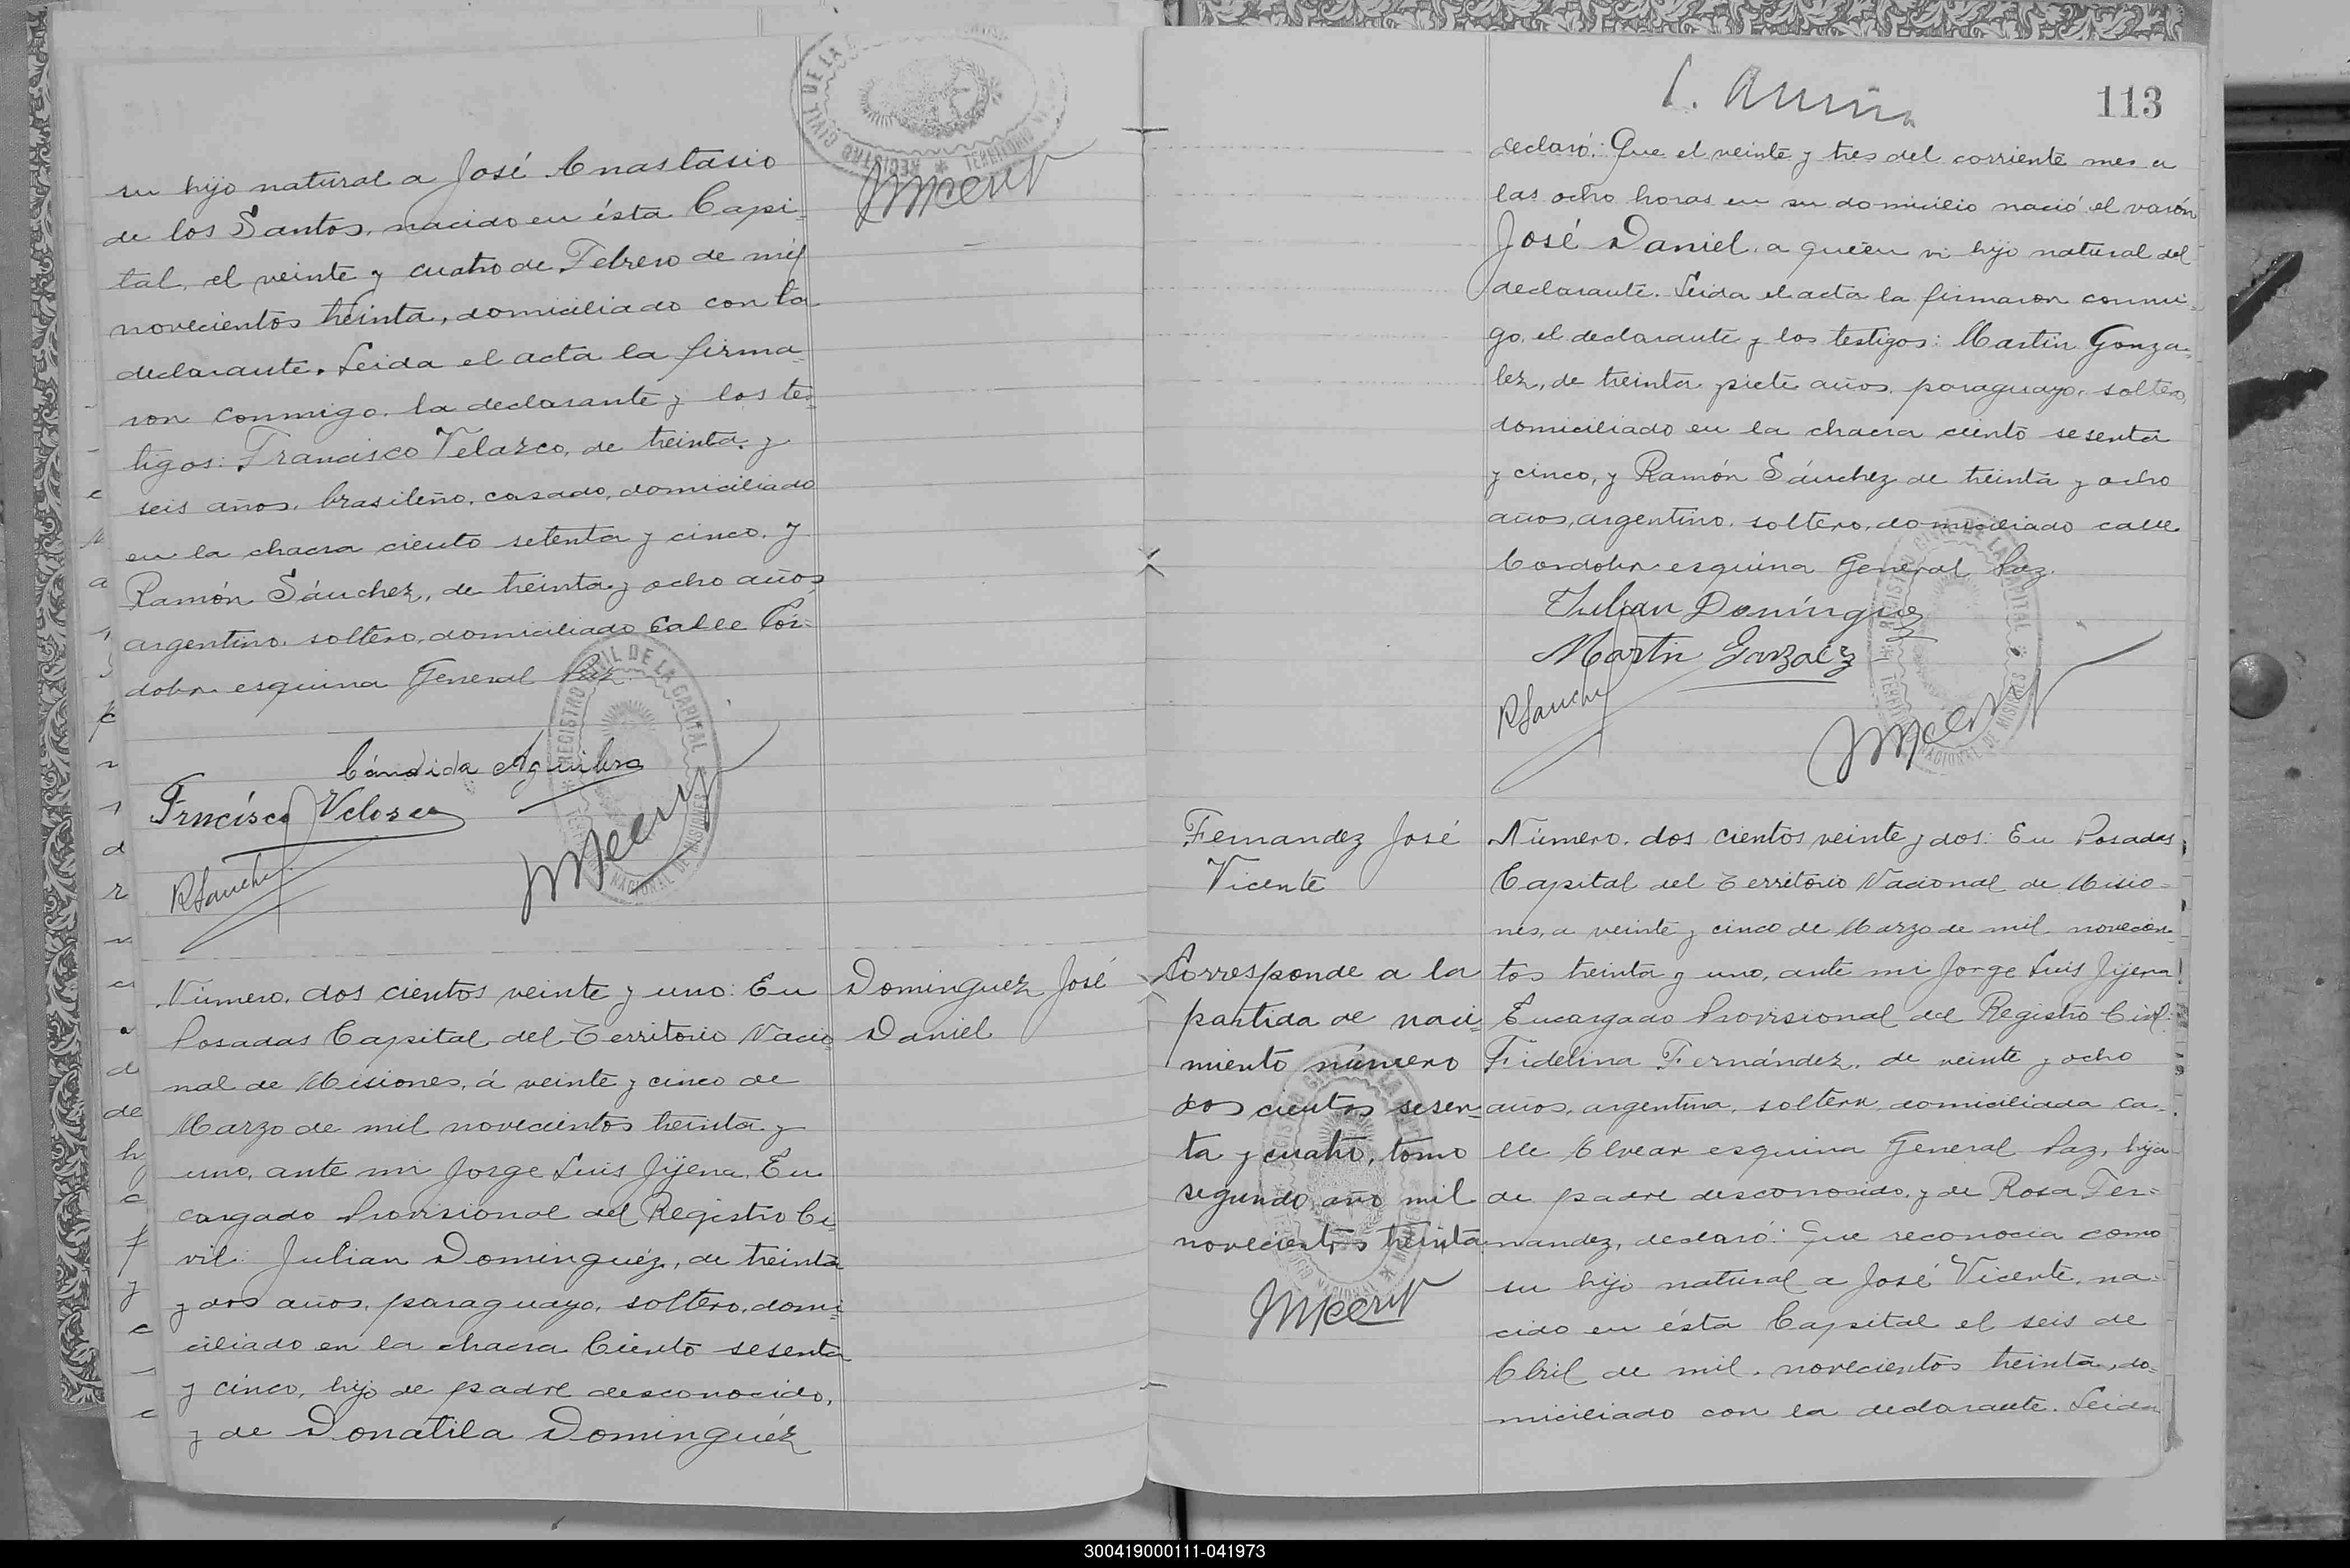 su hijo natural a José Anastasio
de los Santos, nacido en ésta Capi-
tal, el veinte y cuatro de Febrero de mil
novecientos treinta, domiciliado con la
declarante. Leida el acta la firma-
ron conmigo, la declarante y los tes-
tigos: Francisco Velazco, de treinta y
seis años, brasileño, casado, domiciliado
en la chacra ciento setenta y cinco, y
Ramón Sánchez, de treinta y ocho años
argentino, soltero, domiciliado Calle Cór-
doba esquina General Paz.
Cándida Aguilera
Frncisco Velosco
RSanchez
REGISTRO CIVIL DE LA CAPITAL
NACIONAL DE MISIONES
Número, dos cientos veinte y uno: En
Posadas Capital del Territorio Nacio-
nal de Misiones, á veinte y cinco de
Marzo de mil novecientos treinta y
uno, ante mi Jorge Luis Jijena, En
cargado Provisional del Registro Ci-
vil: Julian Dominguéz, de treinta
y dos años, paraguayo, soltero, domi-
ciliado en la chacra Ciento sesenta
y cinco, hijo de padre desconocido,
y de Donatila Dominguéz
Dominguez José
Daniel
113
declaró: Que el veinte y tres del corriente mes a
las ocho horas en su domicilio nació el varón
José Daniel, a quién vi hijo natural del
declarante. Leida el acta la firmaron conmi-
go, el declarante y los testigos: Martin Gonza-
lez, de treinta y siete años, paraguayo, soltero,
domiciliado en la chacra ciento sesenta
y cinco, y Ramón Sánchez de treinta y ocho
años, argentino, soltero, domiciliado calle
Cordoba esquina General Paz.
Julian Domínguez
Martin Gonzalez
RSanchez
REGISTRO CIVIL DE LA CAPITAL
NACIONAL DE MISIONES
Fernandez José
Vicente
Corresponde a la
partida de naci-
miento número
dos cientos sesen-
ta y cuatro, tomo
segundo, año mil
novecientos treinta
Número, dos cientos veinte y dos: En Posadas
Capital del Territorio Nacional de Misio-
nes, a veinte y cinco de Marzo de mil novecien-
tos treinta y uno, ante mi Jorge Luis Jijena
Encargado Provisional del Registro Civil:
Fidelina Fernández, de veinte y ocho
años, argentina, soltera, domiciliada ca-
lle Alvear esquina General Paz, hija
de padre desconocido, y de Rosa Fer-
nandez, declaró: Que reconocia como
su hijo natural a José Vicente, na-
cido en ésta Capital el seis de
Abril de mil novecientos treinta, do-
miciliado con la declarante. Leida
300419000111-041973